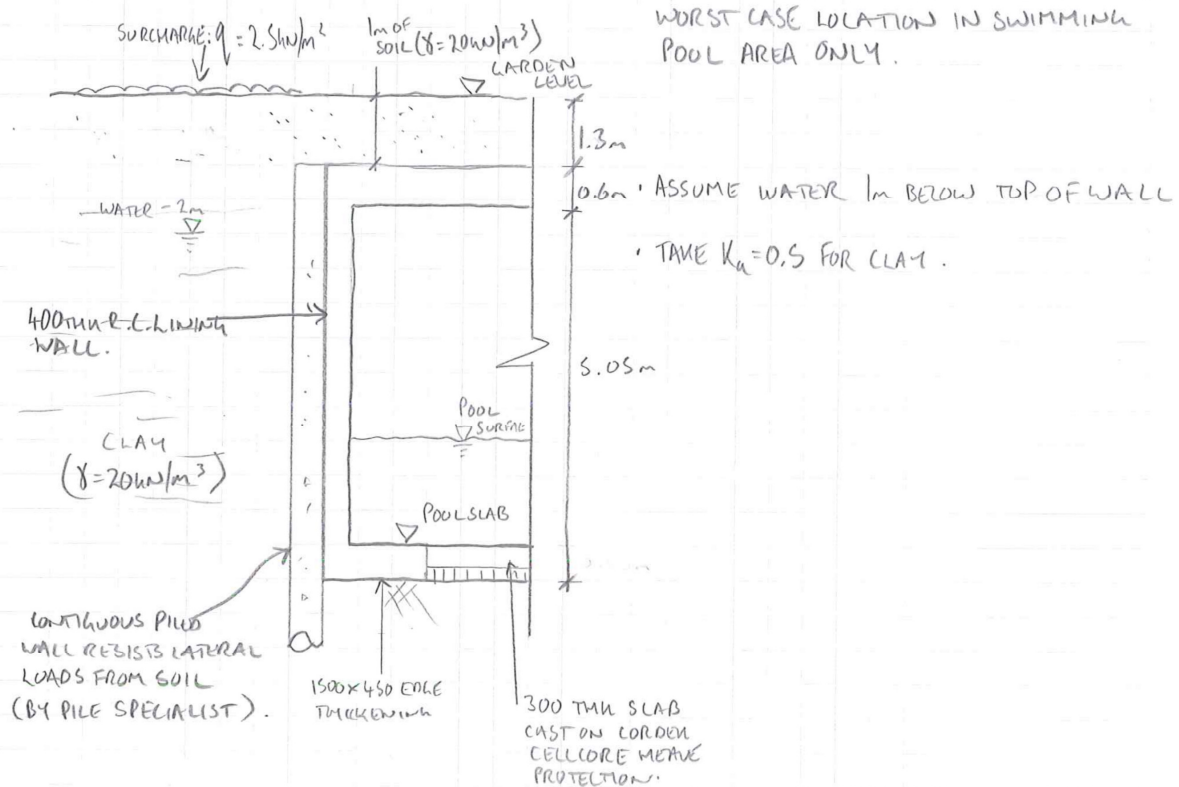 SURCHARGE: q = 2.5kN/m²
1m OF
SOIL (γ=20kN/m³)
GARDEN
LEVEL
WORST CASE LOCATION IN SWIMMING
POOL AREA ONLY.
1.3m
0.6m
· ASSUME WATER 1m BELOW TOP OF WALL
WATER -2m
· TAKE Ka=0.5 FOR CLAY.
400THK R.C. LINING
WALL.
5.05m
POOL
SURFACE
CLAY
(γ=20kN/m³)
POOL SLAB
CONTIGUOUS PILED
WALL RESISTS LATERAL
LOADS FROM SOIL
(BY PILE SPECIALIST).
1500×450 EDGE
THICKENING
300 THK SLAB
CAST ON CORDEK
CELLCORE HEAVE
PROTECTION.